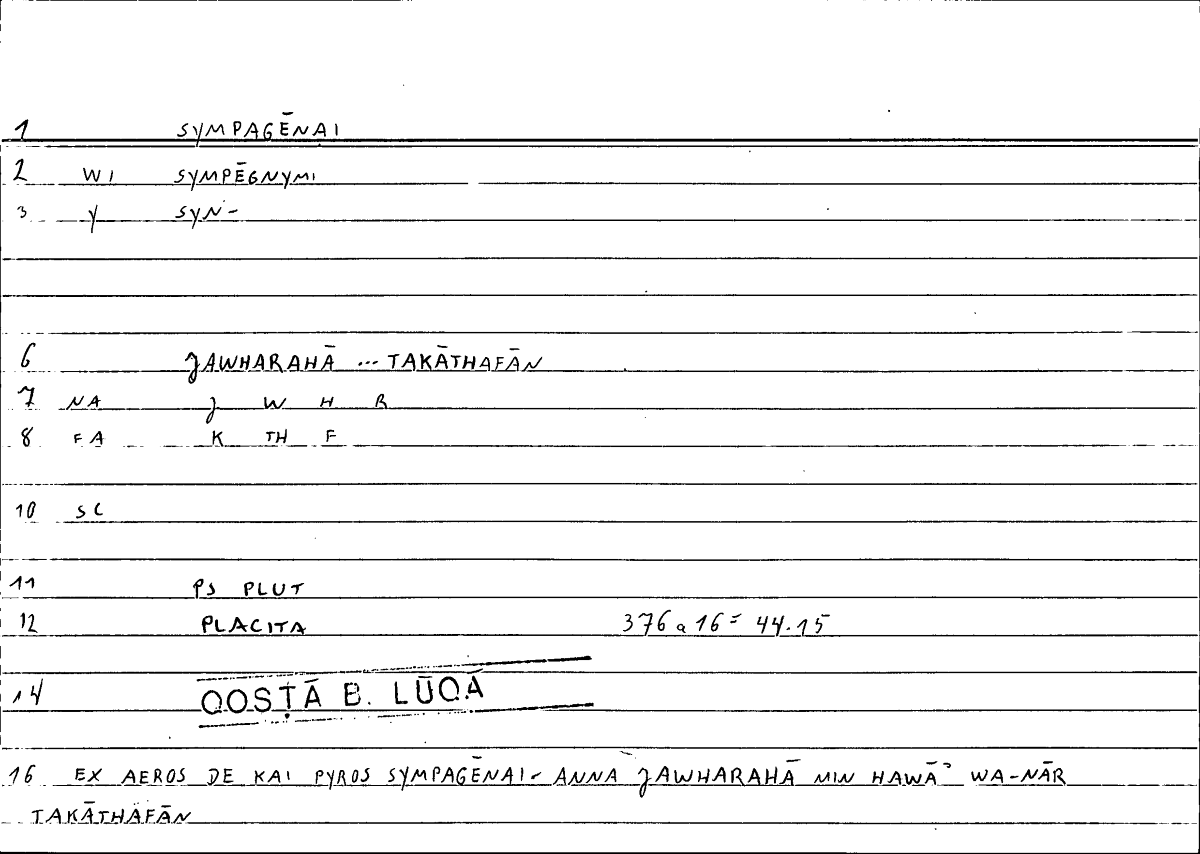 1 SYMPAGĒNAI
2 WI SYMPĒGNYMI
3 Y SYN-
6 JAWHARAHĀ ... TAKĀTHAFĀN
7 NA J W H R
8 FA K TH F
10 SC
11 PS PLUT
12 PLACITA 376 a 16 = 44.15
14 QOSṬĀ B. LŪQĀ
16 EX AEROS DE KAI PYROS SYMPAGĒNAI - ANNA JAWHARAHĀ MIN HAWĀʾ WA-NĀR
TAKĀTHAFĀN